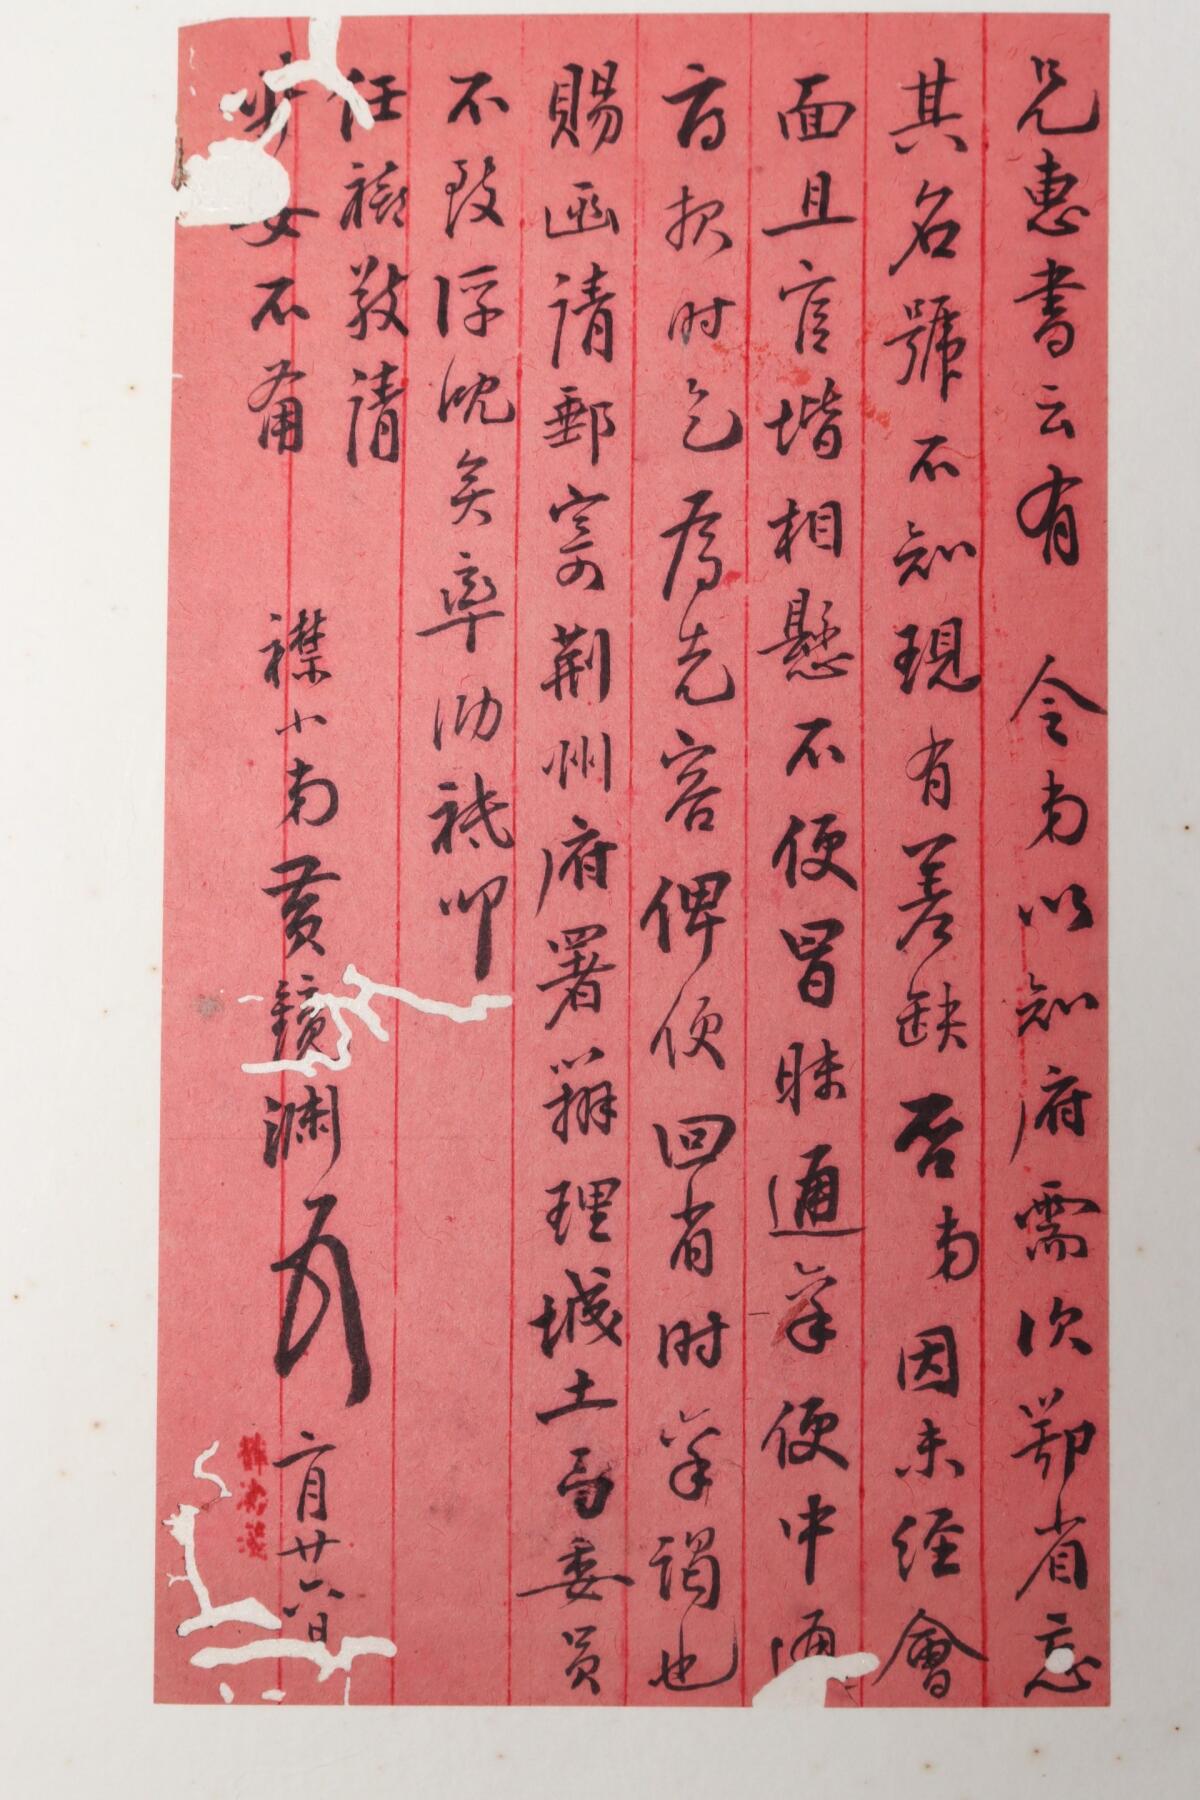 兄惠書云有 令弟以知府需次鄂省忘
其名號不知現有差缺否弟因未經會
面且官階相懸不便冒昧通筆便中通
有折时乞為先容俾便回省时掌謁也
賜函請郵寄荆州府署辦理城土局委員
不致浮沈矣率泐祗叩
任禧敬請
安不備
襟小弟黃鏡渊 頓
二月廿六日